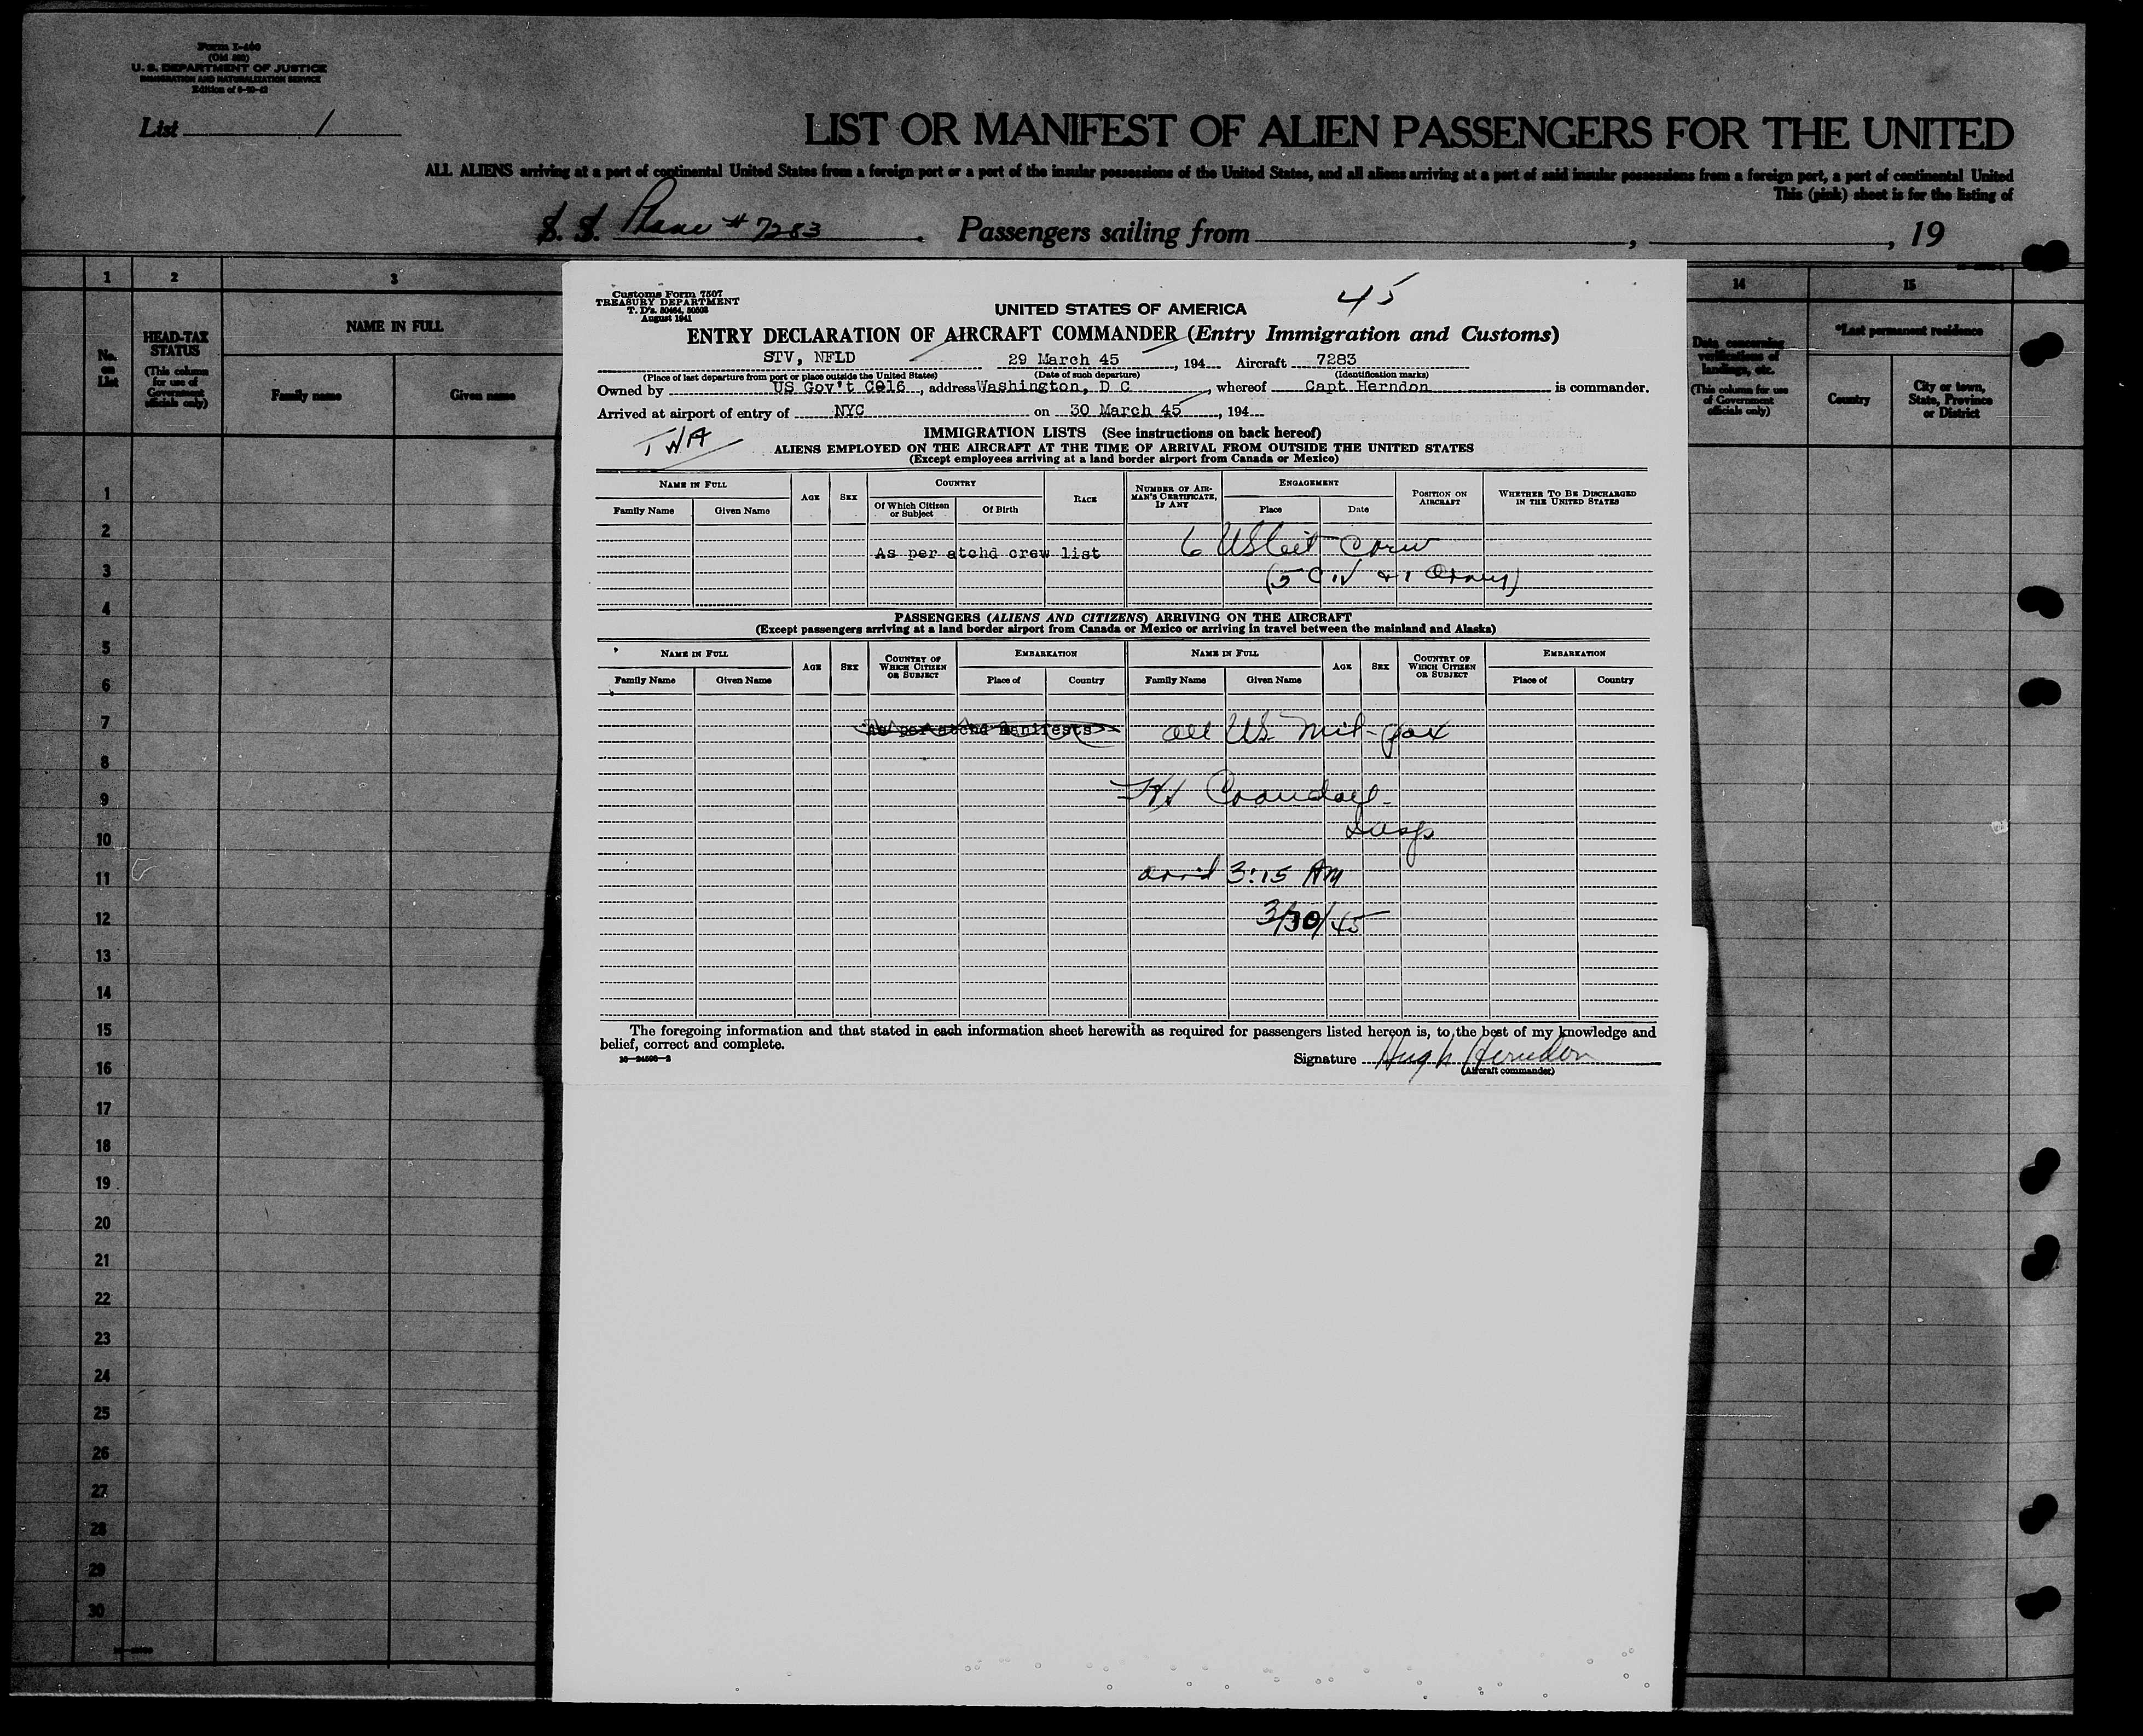 Form I-460
(Old 500)
U. S. DEPARTMENT OF JUSTICE
IMMIGRATION AND NATURALIZATION SERVICE
List 1
LIST OR MANIFEST OF ALIEN PASSENGERS FOR THE UNITED
ALL ALIENS arriving at a port of continental United States from a foreign port or a port of the insular possessions of the United States, and all aliens arriving at a port of said insular possessions from a foreign port, a port of continental United
This (pink) sheet is for the listing of
S. S. Plane # 7283 . Passengers sailing from , , 19
1 2 3 14 15
No. on List
HEAD-TAX STATUS
(This column for use of Government officials only)
NAME IN FULL
Family name Given name
Data concerning verifications of landings, etc.
(This column for use of Government officials only)
*Last permanent residence
Country City or town, State, Province or District
1
2
3
4
5
6
7
8
9
10
11
12
13
14
15
16
17
18
19
20
21
22
23
24
25
26
27
28
29
30
Customs Form 7507
TREASURY DEPARTMENT
T. D's. 50464, 50503
August 1941
45
UNITED STATES OF AMERICA
ENTRY DECLARATION OF AIRCRAFT COMMANDER (Entry Immigration and Customs)
STV, NFLD 29 March 45 , 194 Aircraft 7283
(Place of last departure from port or place outside the United States) (Date of such departure) (Identification marks)
Owned by US Gov't C@16 , address Washington, D C , whereof Capt Herndon is commander.
Arrived at airport of entry of NYC on 30 March 45 , 194
TWA
IMMIGRATION LISTS (See instructions on back hereof)
ALIENS EMPLOYED ON THE AIRCRAFT AT THE TIME OF ARRIVAL FROM OUTSIDE THE UNITED STATES
(Except employees arriving at a land border airport from Canada or Mexico)
NAME IN FULL AGE SEX COUNTRY RACE NUMBER OF AIRMAN'S CERTIFICATE, IF ANY ENGAGEMENT POSITION ON AIRCRAFT WHETHER TO BE DISCHARGED IN THE UNITED STATES
Family Name Given Name Of Which Citizen or Subject Of Birth Place Date
As per atchd crew list 6 US Cit Crew
(5 Civ + 1 Army)
PASSENGERS (ALIENS AND CITIZENS) ARRIVING ON THE AIRCRAFT
(Except passengers arriving at a land border airport from Canada or Mexico or arriving in travel between the mainland and Alaska)
NAME IN FULL AGE SEX COUNTRY OF WHICH CITIZEN OR SUBJECT EMBARKATION NAME IN FULL AGE SEX COUNTRY OF WHICH CITIZEN OR SUBJECT EMBARKATION
Family Name Given Name Place of Country Family Name Given Name Place of Country
As per atchd manifests all US mil- pax
Crandall-
Insp
arrid 3:15 AM
3/30/45
The foregoing information and that stated in each information sheet herewith as required for passengers listed hereon is, to the best of my knowledge and
belief, correct and complete.
Signature Hugh Herndon
(Aircraft commander)